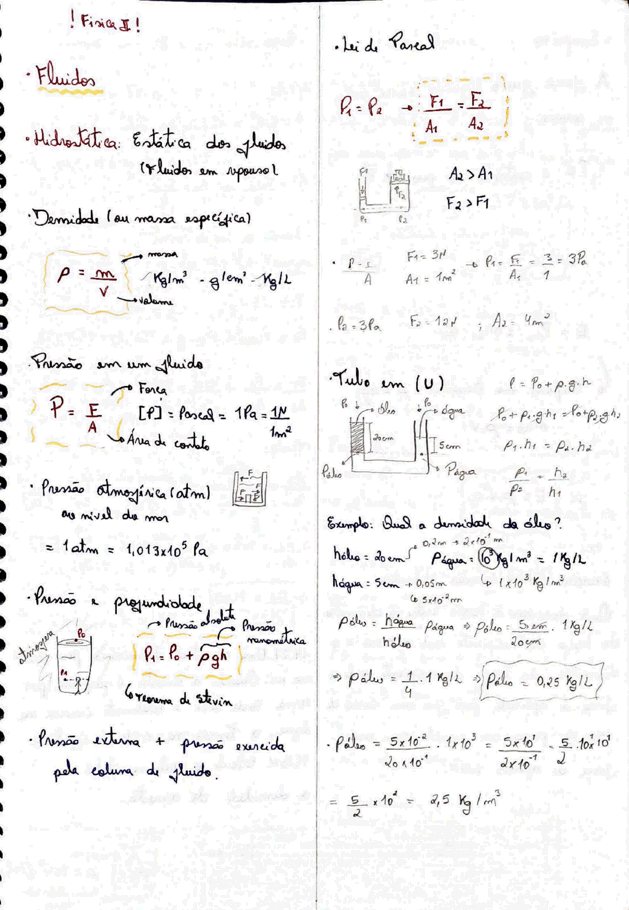 ! Física II !
· Fluidos
· Hidrostática: Estática dos fluidos
(Fluidos em repouso)
· Densidade (ou massa específica)
ρ = m/V
massa
volume
Kg/m³ - g/cm³ - Kg/L
· Pressão em um fluido
P = F/A
Força
Área de contato
[P] = Pascal = 1Pa = 1N/1m²
· Pressão atmosférica (atm)
ao nível do mar
= 1 atm = 1,013x10⁵ Pa
· Pressão e profundidade
atmosfera
P₀
P₁
Pressão absoluta
Pressão manométrica
P₁ = P₀ + ρgh
Teorema de Stevin
· Pressão externa + pressão exercida
pela coluna de fluido.
· Lei de Pascal
P₁ = P₂ → F₁/A₁ = F₂/A₂
F₁
F₂
P₁ P₂
A₂ > A₁
F₂ > F₁
F₁ = 3N
A₁ = 1m²
→ P₁ = F₁/A₁ = 3/1 = 3Pa
· P₂ = 3Pa F₂ = 12N ; A₂ = 4m²
· Tubo em (U)
P₀ óleo P₀ água
20cm
5cm
ρóleo
ρágua
P = P₀ + ρ.g.h
P₀ + ρ₁.g.h₁ = P₀ + ρ₂.g.h₂
ρ₁.h₁ = ρ₂.h₂
ρ₁/ρ₂ = h₂/h₁
Exemplo: Qual a densidade do óleo?
0,2m → 2x10⁻¹ m
hóleo = 20cm ρágua = 10³ Kg/m³ = 1Kg/L
hágua = 5cm → 0,05m ↳ 1x10³ Kg/m³
↳ 5x10⁻² m
ρóleo = hágua/hóleo ρágua ⇒ ρóleo = 5cm/20cm . 1Kg/L
⇒ ρóleo = 1/4 . 1Kg/L ⇒ ρóleo = 0,25 Kg/L
· ρóleo = 5x10⁻²/20x10⁻¹ . 1x10³ = 5x10¹/2x10⁻¹ = 5/2 .10¹x10¹
= 5/2 x10² = 2,5 Kg/m³